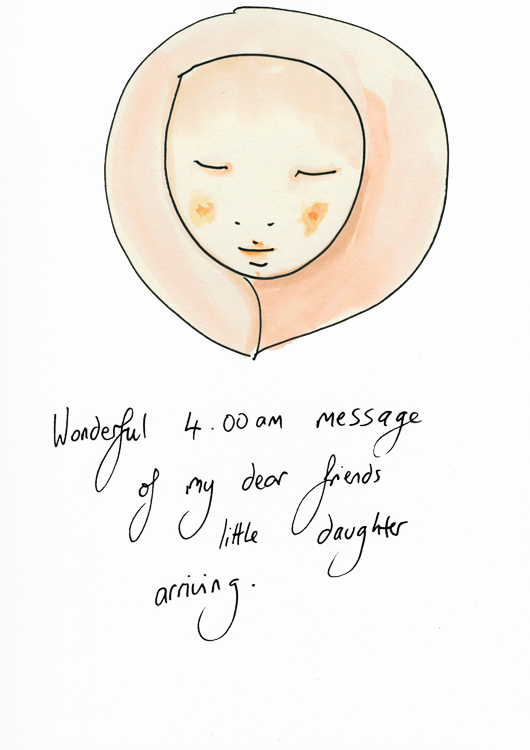 Wonderful 4.00am message
of my dear friends
little daughter
arriving.